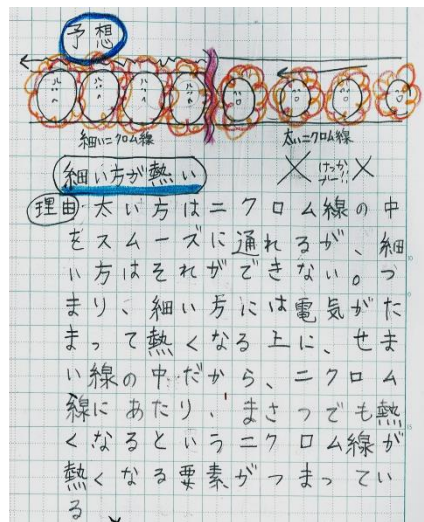 予想
細いニクロム線 太いニクロム線
細い方が熱い
けっか
理由 太い方はニクロム線の中
をスムーズに通れるが、細
い方はそれができない。つ
まり、細い方には電気がた
まって熱くなる上に、せま
い線の中だから、ニクロム
線にあたり、まさつでも熱
くなるというニクロム線が
熱くなる要素がつまってい
る